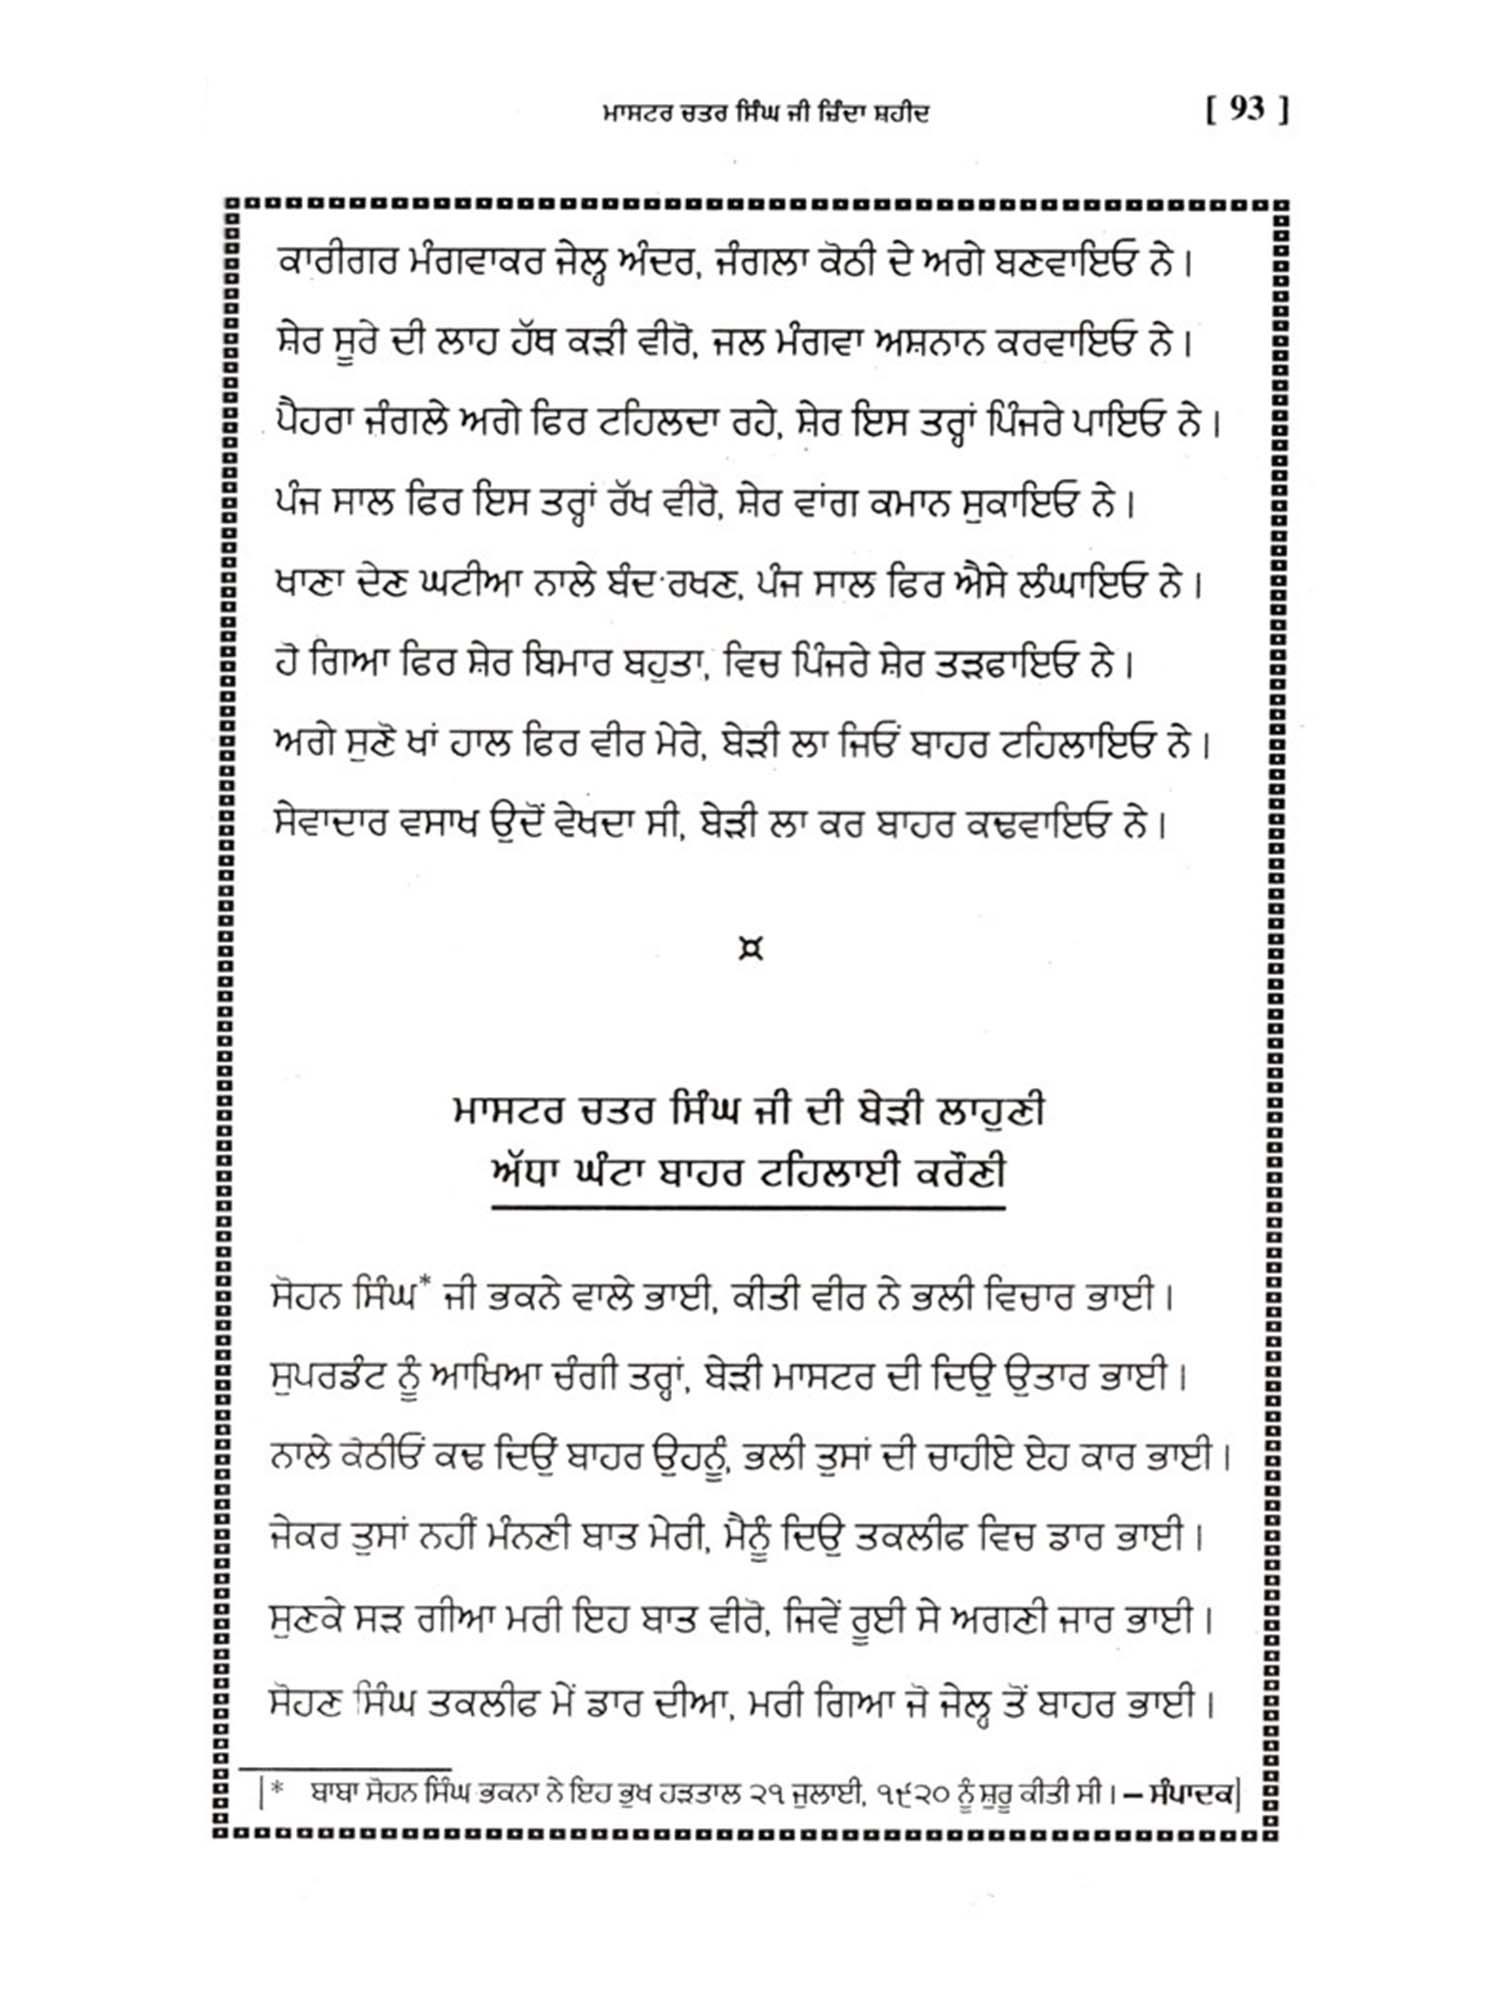 ਮਾਸਟਰ ਚਤਰ ਸਿੰਘ ਜੀ ਜ਼ਿੰਦਾ ਸ਼ਹੀਦ [ 93 ]
ਕਾਰੀਗਰ ਮੰਗਵਾਕਰ ਜੇਲ੍ਹ ਅੰਦਰ, ਜੰਗਲਾ ਕੋਠੀ ਦੇ ਅਗੇ ਬਣਵਾਇਓ ਨੇ।
ਸ਼ੇਰ ਸੂਰੇ ਦੀ ਲਾਹ ਹੱਥ ਕੜੀ ਵੀਰੋ, ਜਲ ਮੰਗਵਾ ਅਸ਼ਨਾਨ ਕਰਵਾਇਓ ਨੇ।
ਪੈਹਰਾ ਜੰਗਲੇ ਅਗੇ ਫਿਰ ਟਹਿਲਦਾ ਰਹੇ, ਸ਼ੇਰ ਇਸ ਤਰ੍ਹਾਂ ਪਿੰਜਰੇ ਪਾਇਓ ਨੇ।
ਪੰਜ ਸਾਲ ਫਿਰ ਇਸ ਤਰ੍ਹਾਂ ਰੱਖ ਵੀਰੋ, ਸ਼ੇਰ ਵਾਂਗ ਕਮਾਨ ਸੁਕਾਇਓ ਨੇ।
ਖਾਣਾ ਦੇਣ ਘਟੀਆ ਨਾਲੇ ਬੰਦ ਰਖਣ, ਪੰਜ ਸਾਲ ਫਿਰ ਐਸੇ ਲੰਘਾਇਓ ਨੇ।
ਹੋ ਗਿਆ ਫਿਰ ਸ਼ੇਰ ਬਿਮਾਰ ਬਹੁਤਾ, ਵਿਚ ਪਿੰਜਰੇ ਸ਼ੇਰ ਤੜਫਾਇਓ ਨੇ।
ਅਗੇ ਸੁਣੋ ਖਾਂ ਹਾਲ ਫਿਰ ਵੀਰ ਮੇਰੇ, ਬੇੜੀ ਲਾ ਜਿਓਂ ਬਾਹਰ ਟਹਿਲਾਇਓ ਨੇ।
ਸੇਵਾਦਾਰ ਵਸਾਖ ਉਦੋਂ ਵੇਖਦਾ ਸੀ, ਬੇੜੀ ਲਾ ਕਰ ਬਾਹਰ ਕਢਵਾਇਓ ਨੇ।
¤
ਮਾਸਟਰ ਚਤਰ ਸਿੰਘ ਜੀ ਦੀ ਬੇੜੀ ਲਾਹੁਣੀ
ਅੱਧਾ ਘੰਟਾ ਬਾਹਰ ਟਹਿਲਾਈ ਕਰੌਣੀ
ਸੋਹਨ ਸਿੰਘ* ਜੀ ਭਕਨੇ ਵਾਲੇ ਭਾਈ, ਕੀਤੀ ਵੀਰ ਨੇ ਭਲੀ ਵਿਚਾਰ ਭਾਈ।
ਸੁਪਰਡੰਟ ਨੂੰ ਆਖਿਆ ਚੰਗੀ ਤਰ੍ਹਾਂ, ਬੇੜੀ ਮਾਸਟਰ ਦੀ ਦਿਉ ਉਤਾਰ ਭਾਈ।
ਨਾਲੇ ਕੋਠੀਓਂ ਕਢ ਦਿਉਂ ਬਾਹਰ ਉਹਨੂੰ, ਭਲੀ ਤੁਸਾਂ ਦੀ ਚਾਹੀਏ ਏਹ ਕਾਰ ਭਾਈ।
ਜੇਕਰ ਤੁਸਾਂ ਨਹੀਂ ਮੰਨਣੀ ਬਾਤ ਮੇਰੀ, ਮੈਨੂੰ ਦਿਉ ਤਕਲੀਫ ਵਿਚ ਡਾਰ ਭਾਈ।
ਸੁਣਕੇ ਸੜ ਗੀਆ ਮਰੀ ਇਹ ਬਾਤ ਵੀਰੋ, ਜਿਵੇਂ ਰੂਈ ਸੇ ਅਗਣੀ ਜਾਰ ਭਾਈ।
ਸੋਹਣ ਸਿੰਘ ਤਕਲੀਫ ਮੇਂ ਡਾਰ ਦੀਆ, ਮਰੀ ਗਿਆ ਜੋ ਜੇਲ੍ਹ ਤੋਂ ਬਾਹਰ ਭਾਈ।
[* ਬਾਬਾ ਸੋਹਨ ਸਿੰਘ ਭਕਨਾ ਨੇ ਇਹ ਭੁਖ ਹੜਤਾਲ ੨੧ ਜੁਲਾਈ, ੧੯੨੦ ਨੂੰ ਸ਼ੁਰੂ ਕੀਤੀ ਸੀ। – ਸੰਪਾਦਕ]